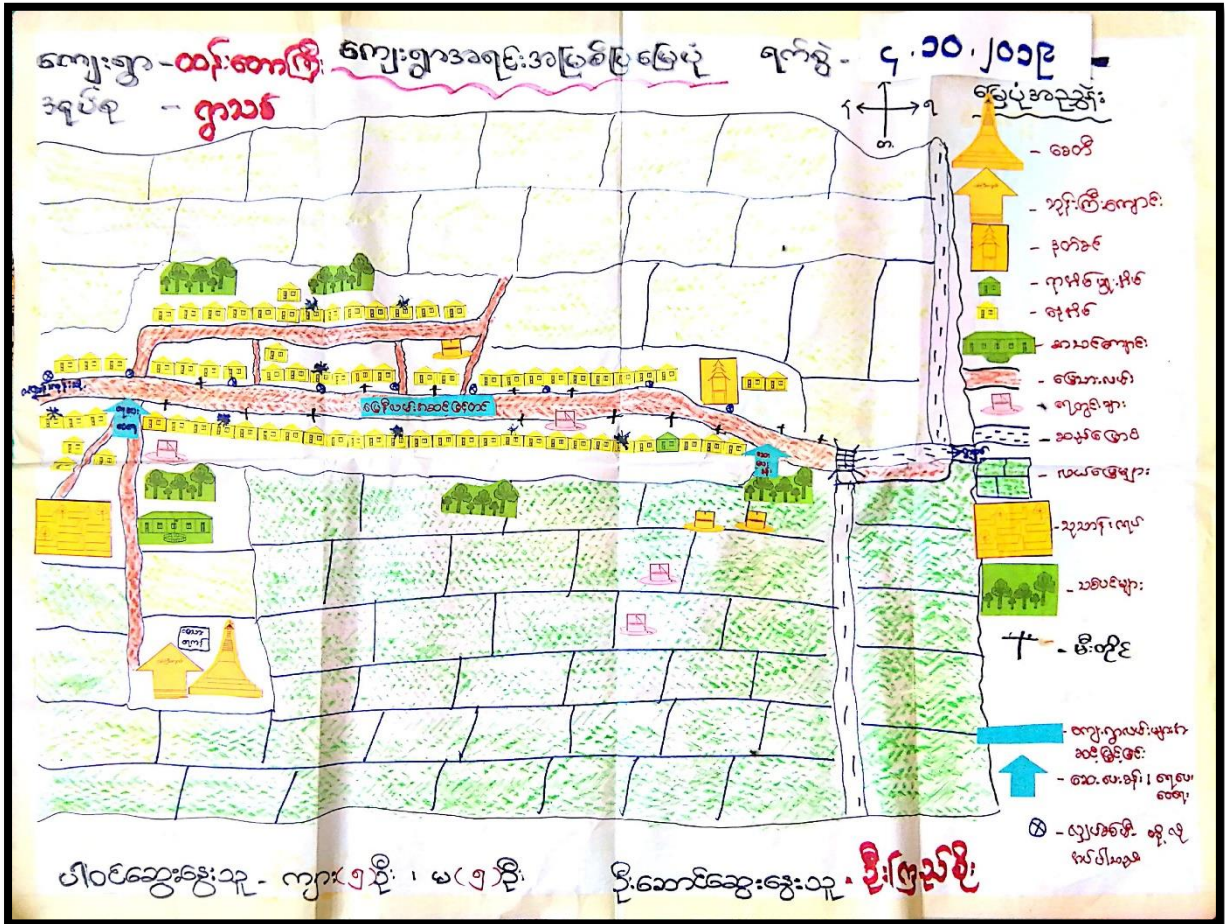 ကျေးရွာ - ထန်းတောကြီး ကျေးရွာအရင်းအမြစ်ပြမြေပုံ ရက်စွဲ - ၄.၁၀.၂၀၁၉
အုပ်စု - ရွာသစ်
မြေပုံအညွှန်း
တ
- စေတီ
- ဘုန်းကြီးကျောင်း
- နတ်စင်
- ရာအိမ်မှူးအိမ်
- နေအိမ်
- စာသင်ကျောင်း
- မြေသားလမ်း
- ရေတွင်းများ
- ဆည်မြောင်း
- လယ်မြေများ
- သုသာန်ကုန်း
- သစ်ပင်များ
- မီးတိုင်
- ကျေးရွာလမ်းများအဆင့်မြှင့်ခြင်း
- ဆေးပေးခန်း၊ ရေပေးဝေရေး
မြေနီလမ်းအဆင့်မြှင့်တင်
ပါဝင်ဆွေးနွေးသူ - ကျား(၅)ဦး ၊ မ(၅)ဦး ဦးဆောင်ဆွေးနွေးသူ - ဦးကြည်စိုး